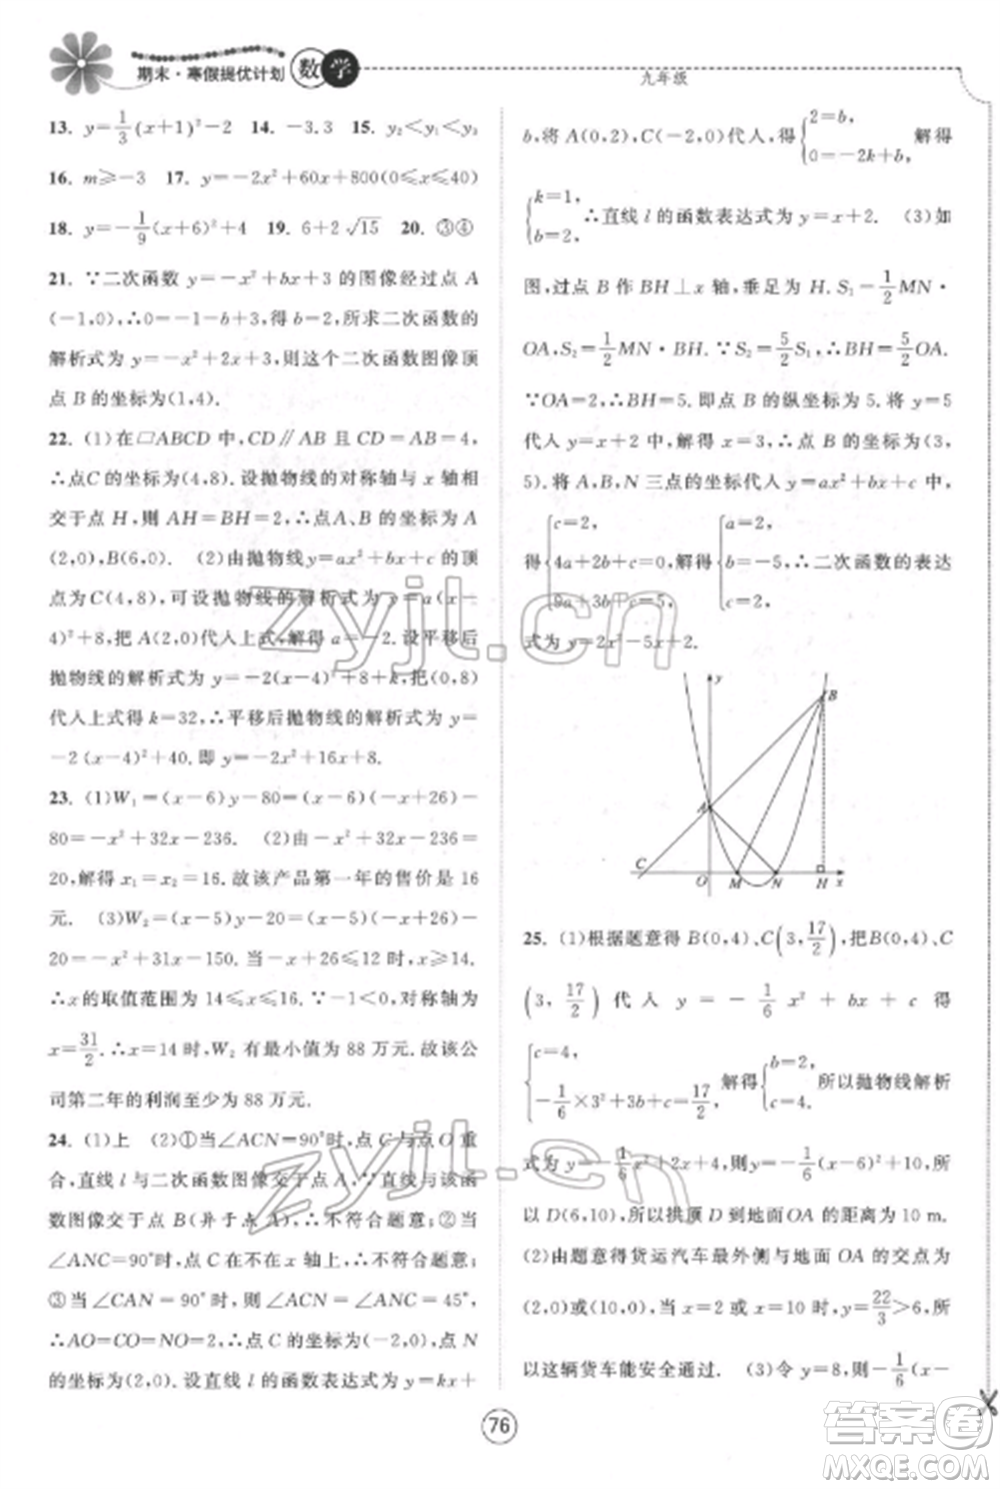 期末·寒假提优计划 数学
九年级
13. y=1/3(x+1)²-2 14. -3,3 15. y₂<y₁<y₃
16. m≥-3 17. y=-2x²+60x+800(0≤x≤40)
18. y=-1/9(x+6)²+4 19. 6+2√15 20. ③④
21. ∵二次函数 y=-x²+bx+3 的图像经过点 A
(-1,0),∴0=-1-b+3,得 b=2,所求二次函数的
解析式为 y=-x²+2x+3,则这个二次函数图像顶
点 B 的坐标为(1,4).
22. (1)在□ABCD 中,CD∥AB 且 CD=AB=4,
∴点C 的坐标为(4,8). 设抛物线的对称轴与 x 轴相
交于点 H,则 AH=BH=2,∴点A、B 的坐标为 A
(2,0),B(6,0). (2)由抛物线 y=ax²+bx+c 的顶
点为C(4,8),可设抛物线的解析式为 y=a(x-
4)²+8,把 A(2,0)代入上式,解得 a=-2. 设平移后
抛物线的解析式为 y=-2(x-4)²+8+k,把(0,8)
代入上式得 k=32,∴平移后抛物线的解析式为 y=
-2(x-4)²+40,即 y=-2x²+16x+8.
23. (1)W₁=(x-6)y-80=(x-6)(-x+26)-
80=-x²+32x-236. (2)由-x²+32x-236=
20,解得 x₁=x₂=16. 故该产品第一年的售价是 16
元. (3)W₂=(x-5)y-20=(x-5)(-x+26)-
20=-x²+31x-150. ∵公司规定-x+26≤12,x≥14.
∴x的取值范围为 14≤x≤16. ∵-1<0,对称轴为
x=31/2. ∴x=14 时,W₂ 有最小值为 88 万元. 故该公
司第二年的利润至少为 88 万元.
24. (1)上 (2)①当∠ACN=90°时,点 C 与点 O 重
合,直线 l 与二次函数图像交于点 A. ∵直线与该函
数图像交于点 B(异于点A),∴不符合题意;②当
∠ANC=90°时,点 C 在 x 轴上,∴不符合题意;
③当∠CAN=90°时,则∠ACN=∠ANC=45°,
∴AO=CO=NO=2,∴点 C 的坐标为(-2,0),点 N
的坐标为(2,0). 设直线 l 的函数表达式为 y=kx+
b,将 A(0,2),C(-2,0)代入,得{2=b, 0=-2k+b, 解得
{k=1, b=2. ∴直线 l 的函数表达式为 y=x+2. (3)如
图,过点 B 作 BH⊥x 轴,垂足为 H. S₁=1/2MN·
OA,S₂=1/2MN·BH. ∵S₂=5/2S₁,∴BH=5/2OA.
∵OA=2,∴BH=5. 即点 B 的纵坐标为 5. 将 y=5
代入 y=x+2 中,解得 x=3,∴点 B 的坐标为(3,
5). 将A、B、N 三点的坐标代入 y=ax²+bx+c 中,
得{c=2, 4a+2b+c=0, 9a+3b+c=5, 解得{a=2, b=-5, c=2. ∴二次函数的表达
式为 y=2x²-5x+2.
y
B
A
C
O M N H x
25. (1)根据题意得 B(0,4)、C(3,17/2),把B(0,4)、C
(3,17/2)代入 y=-1/6x²+bx+c 得
{c=4, -1/6×3²+3b+c=17/2, 解得{b=2, c=4. 所以抛物线解析
式为 y=-1/6x²+2x+4,则 y=-1/6(x-6)²+10,所
以 D(6,10),所以拱顶 D 到地面OA 的距离为 10 m.
(2)由题意得货运汽车最外侧与地面 OA 的交点为
(2,0)或(10,0),当 x=2 或 x=10 时,y=22/3>6,所
以这辆货车能安全通过. (3)令 y=8,则-1/6(x-
76
zyjl.cn
zyjl.cn
答案圈
MXQE.COM